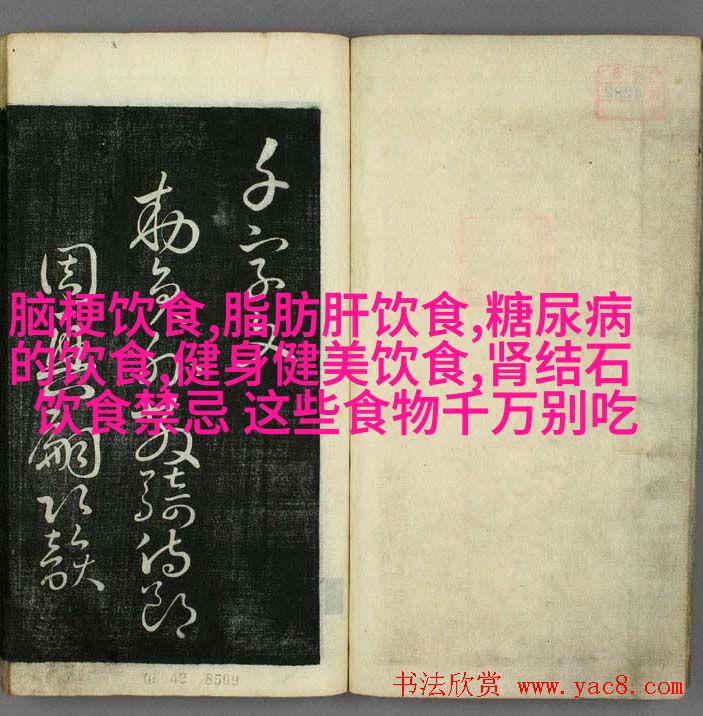 脑梗饮食,脂肪肝饮食,糖尿病
的饮食,健身健美饮食,肾结石
饮食禁忌 这些食物千万别吃
千字文
敕员外散骑侍郎
周兴嗣次韵
4282
01 42 8509
书法欣赏 www.yac8.com